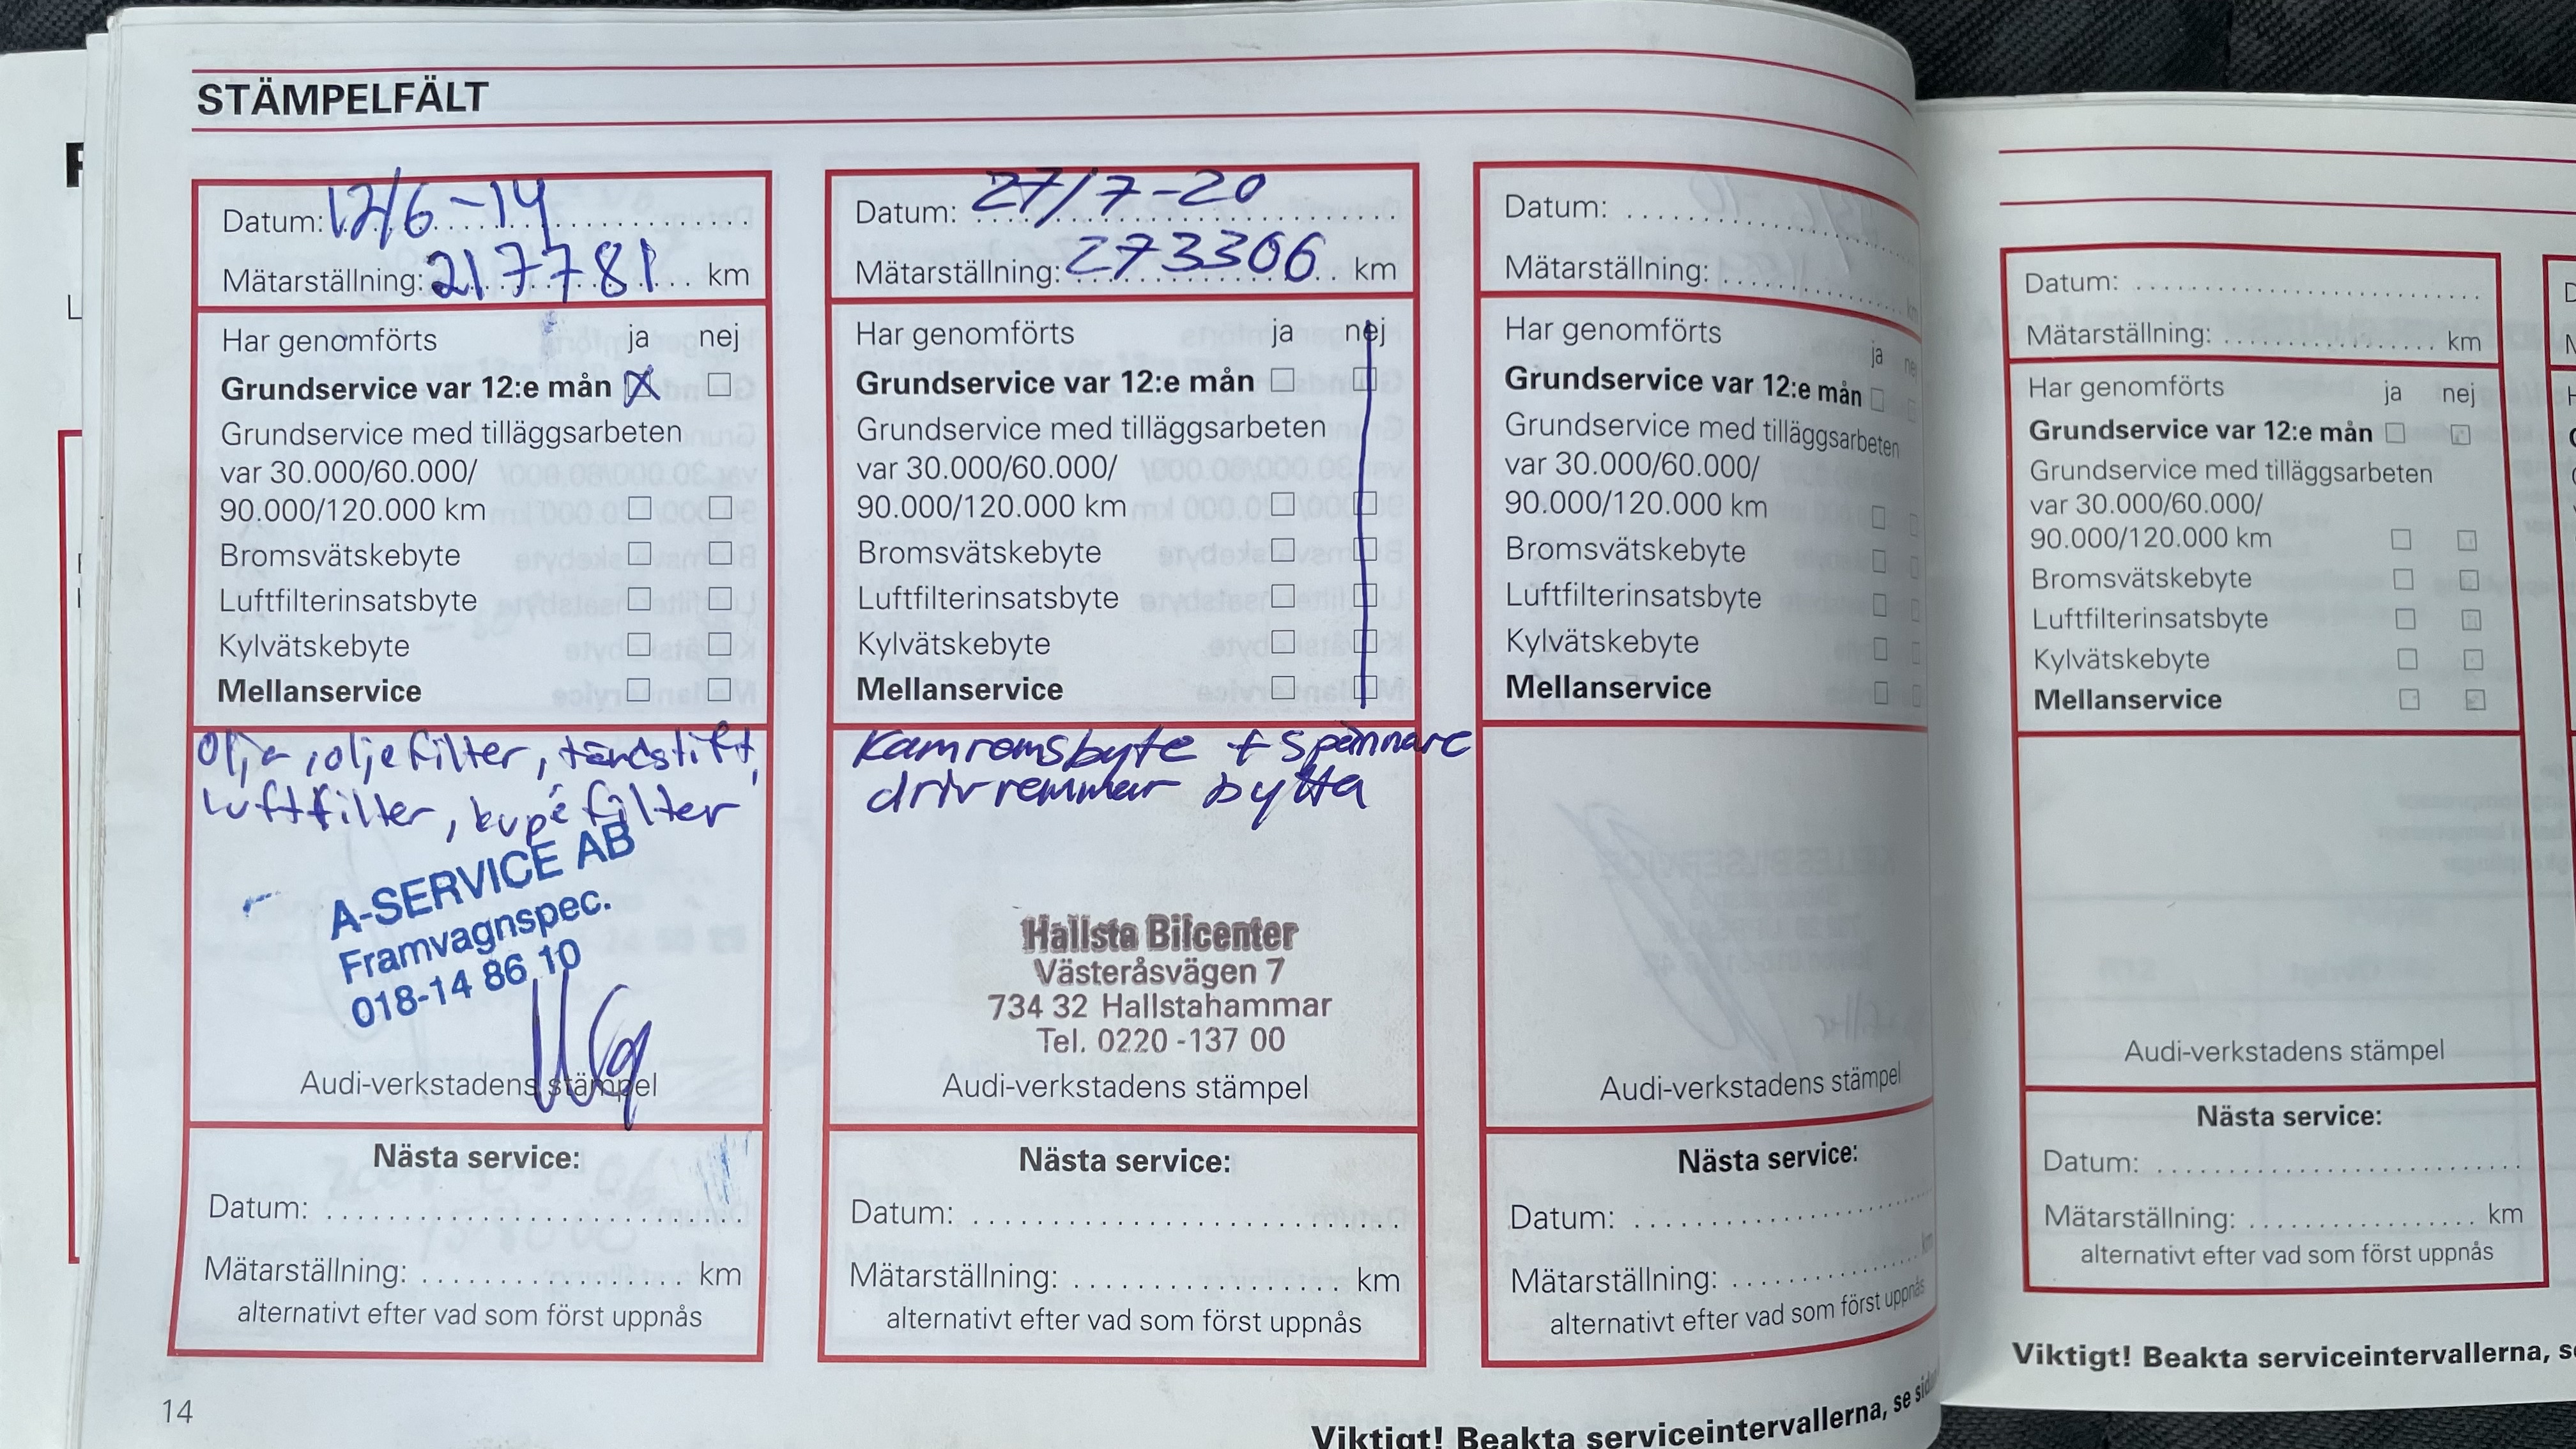 STÄMPELFÄLT
Datum: 12/6-14
Mätarställning: 217781 km
Har genomförts ja nej
Grundservice var 12:e mån
Grundservice med tilläggsarbeten
var 30.000/60.000/
90.000/120.000 km
Bromsvätskebyte
Luftfilterinsatsbyte
Kylvätskebyte
Mellanservice
Olja, oljefilter, tändstift,
Luftfilter, kupéfilter
A-SERVICE AB
Framvagnspec.
018-14 86 10
Audi-verkstadens stämpel
Nästa service:
Datum:
Mätarställning: km
alternativt efter vad som först uppnås
14
Datum: 27/7-20
Mätarställning: 273306 km
Har genomförts ja nej
Grundservice var 12:e mån
Grundservice med tilläggsarbeten
var 30.000/60.000/
90.000/120.000 km
Bromsvätskebyte
Luftfilterinsatsbyte
Kylvätskebyte
Mellanservice
Kamremsbyte + spännare
drivremmar bytta
Hallsta Bilcenter
Västeråsvägen 7
734 32 Hallstahammar
Tel. 0220-137 00
Audi-verkstadens stämpel
Nästa service:
Datum:
Mätarställning: km
alternativt efter vad som först uppnås
Datum:
Mätarställning: km
Har genomförts ja
Grundservice var 12:e mån
Grundservice med tilläggsarbeten
var 30.000/60.000/
90.000/120.000 km
Bromsvätskebyte
Luftfilterinsatsbyte
Kylvätskebyte
Mellanservice
Audi-verkstadens stämpel
Nästa service:
Datum:
Mätarställning: km
alternativt efter vad som först uppnås
Viktigt! Beakta serviceintervallerna, se
Datum:
Mätarställning: km
Har genomförts ja nej
Grundservice var 12:e mån
Grundservice med tilläggsarbeten
var 30.000/60.000/
90.000/120.000 km
Bromsvätskebyte
Luftfilterinsatsbyte
Kylvätskebyte
Mellanservice
Audi-verkstadens stämpel
Nästa service:
Datum:
Mätarställning: km
alternativt efter vad som först uppnås
Viktigt! Beakta serviceintervallerna,